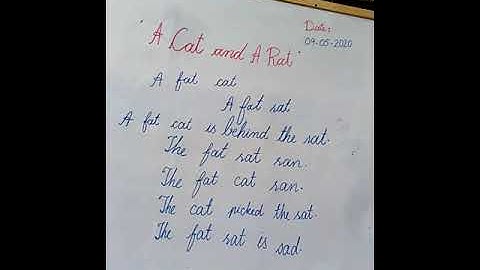 Date:
09-05-2020
"A Cat and A Rat"
A fat cat
A fat rat
A fat cat is behind the rat.
The fat rat ran.
The fat cat ran.
The cat picked the rat.
The fat rat is sad.